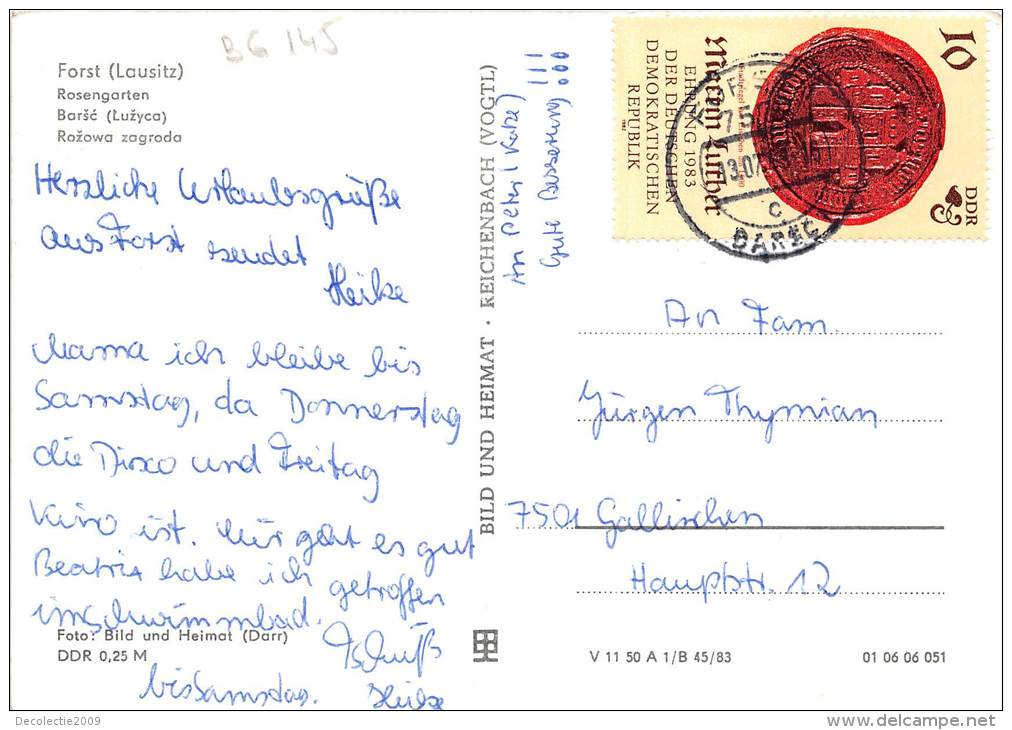 BG 145
Forst (Lausitz)
Rosengarten
Baršć (Łużyca)
Rožowa zagroda
Herzliche Urlaubsgrüße
aus Forst sendet
Heike
Mama ich bleibe bis
Samstag, da Donnerstag
die Disco und Freitag
Kino ist. Mir geht es gut
Beatrix habe ich getroffen
im Schwimmbad.
Tschüß
bis Samstag. Heike
Foto: Bild und Heimat (Darr)
DDR 0,25 M
BILD UND HEIMAT · REICHENBACH (VOGTL)
An Peter (Katze)
Gute Besserung !!!
10
DDR
Martin Luther
EHRUNG 1983
DER DEUTSCHEN
DEMOKRATISCHEN
REPUBLIK
1982
75
c
An Fam.
Jürgen Thymian
7501 Gallinchen
Hauptstr. 12
V 11 50 A 1/B 45/83
01 06 06 051
Decolectie2009
www.delcampe.net